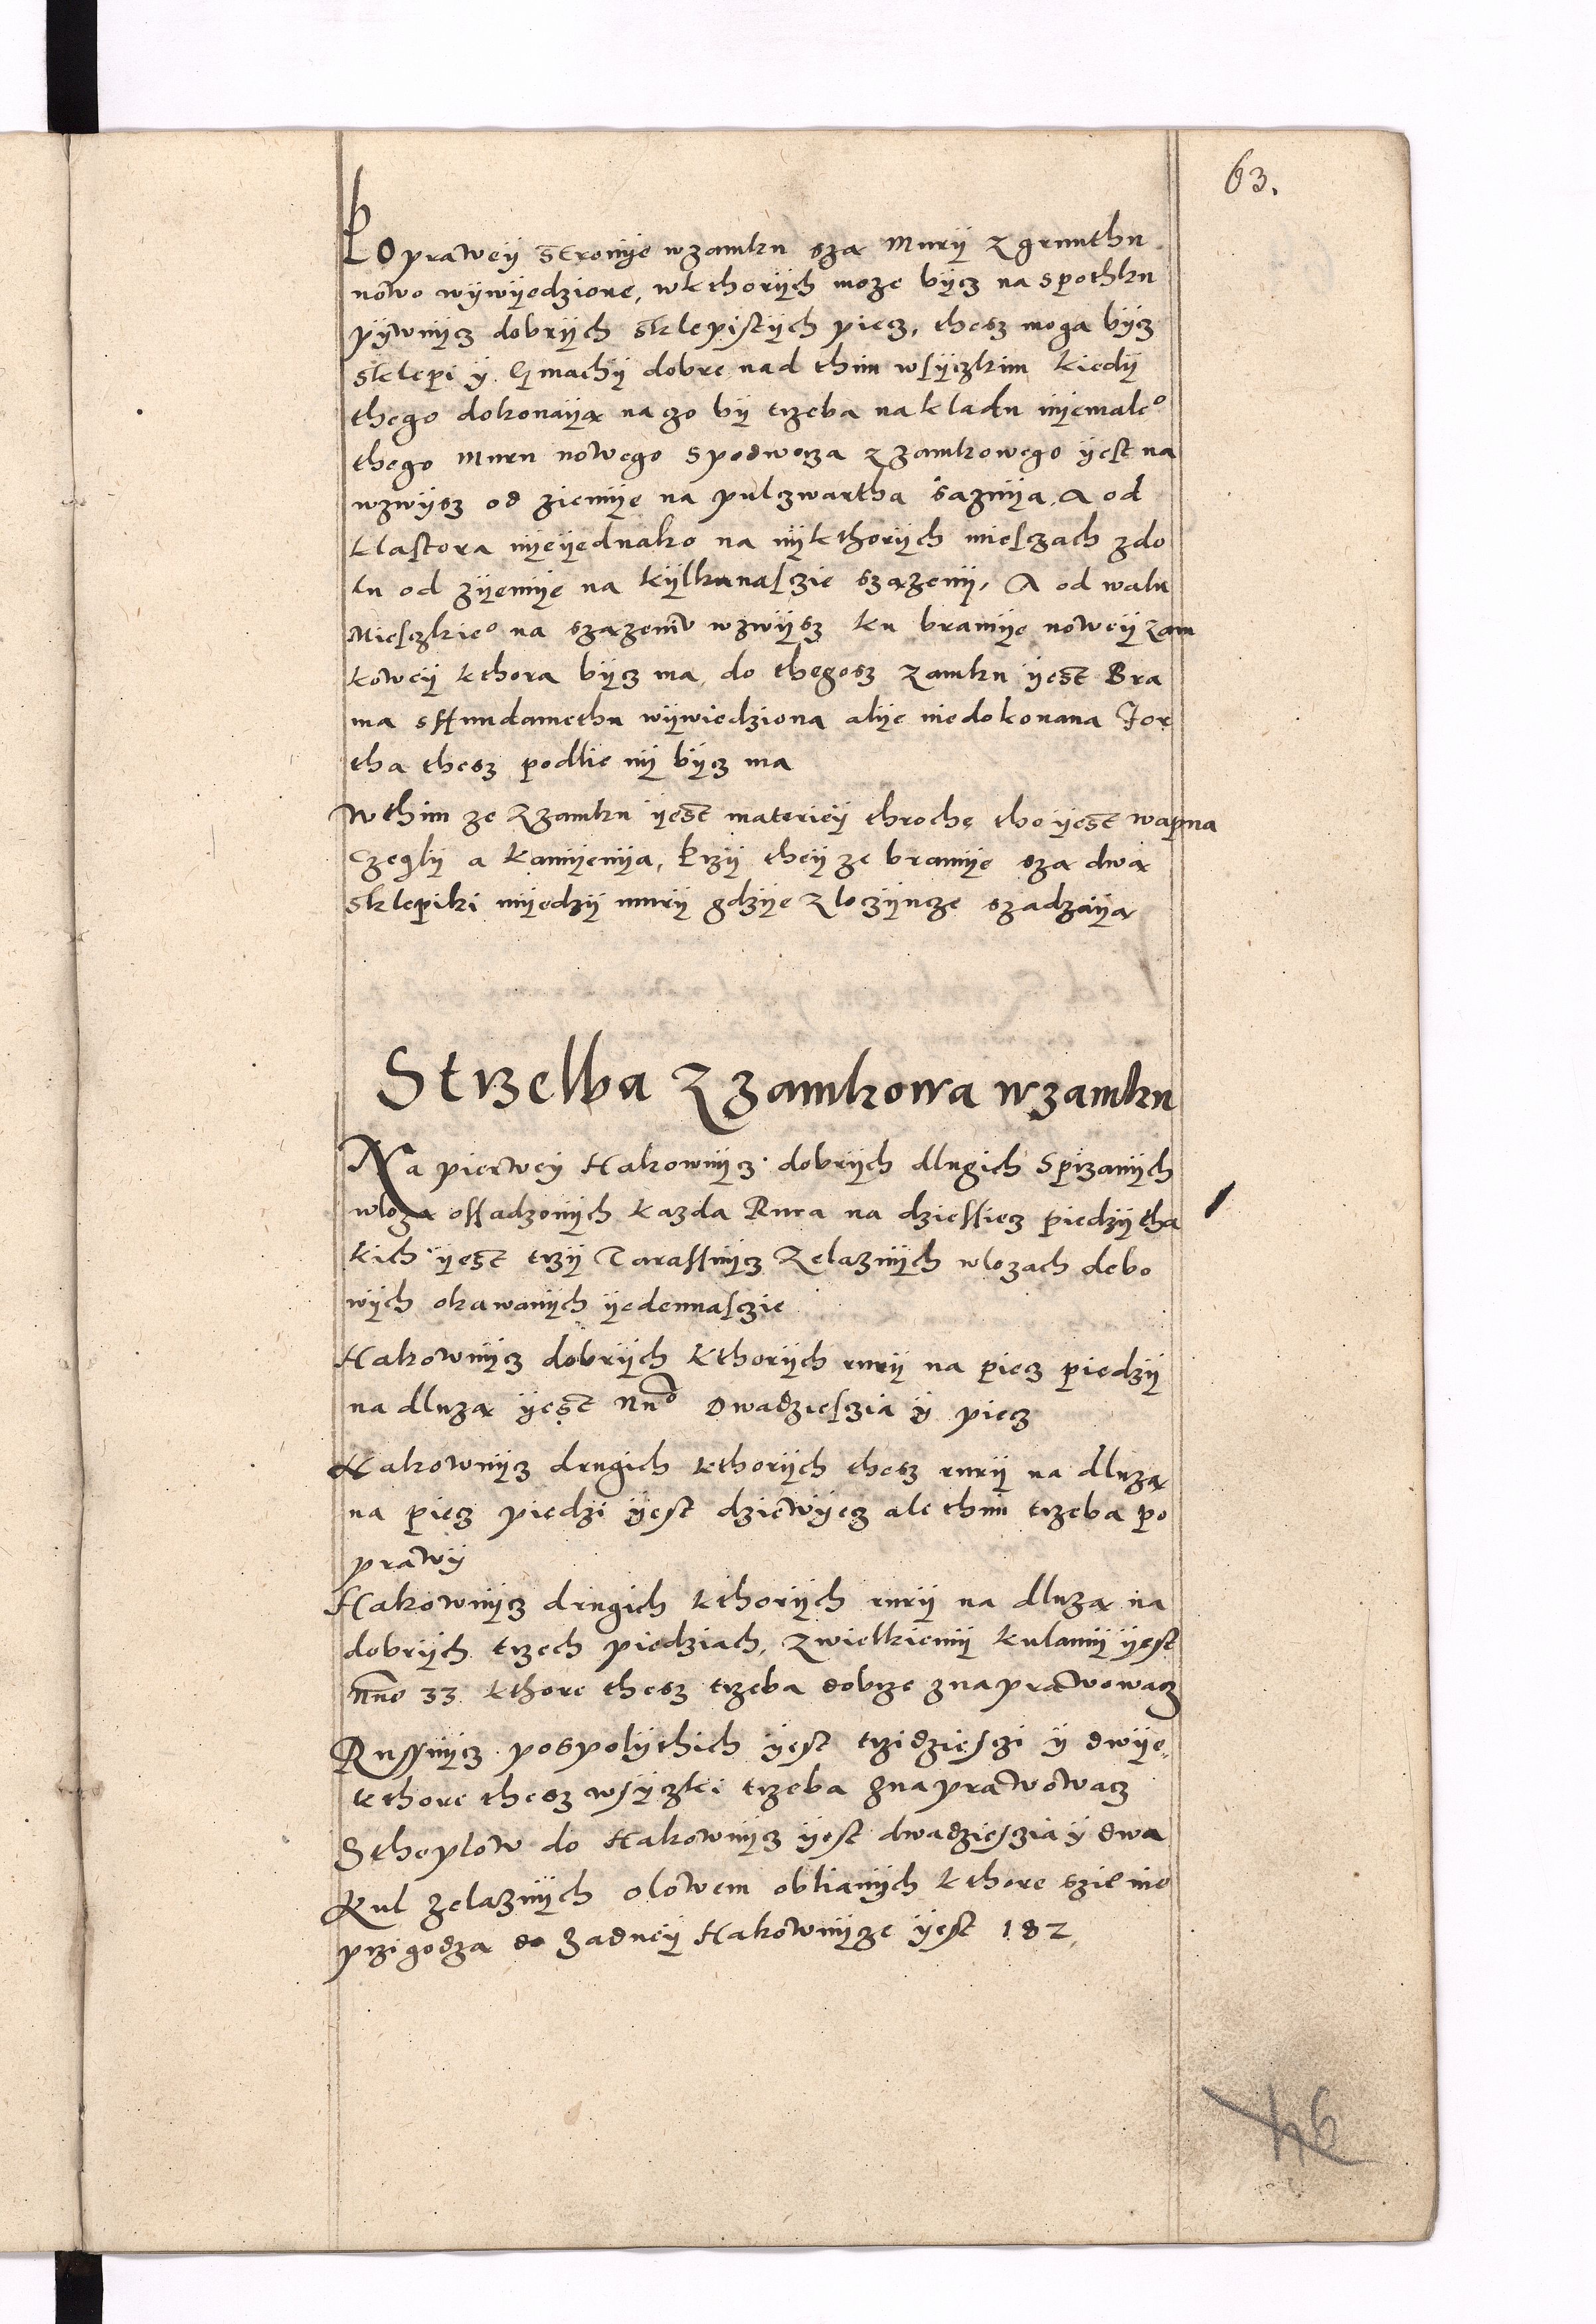 63.
Po prawey stronye wzamku sza Mury z grunthu
nowo wywyedzione, wkthorych moze bycz na spothku
pywnycz dobrych sklepistych piecz, thesz moga bycz
sklepi y Gmachy dobre nad thim wsyczkim kiedy
thego dokonaya na czo by trzeba nakladu nyemale⁰
thego Muru nowego spodworza zzamkowego yest na
wzwysz od ziemye na pulczwartha saznya, A od
klastora nyeyednako na nykthorych miesczach zdo
lu od zyemye na kylkanasczie szazeny, A od walu
Miesczkie⁰ na szazeniu wzwysz ku bramye nowey zam
kowey kthora bycz ma, do thegosz zamku yest Bra
ma sffundamethu wywiedziona alye niedokonana For
tha thesz podlie ny bycz ma
Wthim ze zzamku yest materiey throche tho yest wapna
Czegly a kamyenya, Przy they ze bramye sza dwa
sklepiki myedzy mury gdzye zloczyncze szadzaya
Strzelba zzamkowa wzamku
Na pierwey Hakownycz dobrych dlugich Spizanych
wloza ossadzonych kazda Rura na dziessiecz piedzy tha
kich yest trzy Tarassnycz zelaznych wlozach debo
wych okawanych yedennasczie
Hakownycz dobrych kthorych rury na piecz piedzy
na dluza yest Nu⁰ Dwadziesczia y piecz
Hakownycz drugich kthorych thesz rury na dluza
na piecz piedzi yest dziewyecz ale thim trzeba po
prawy
Hakownycz drugich kthorych rury na dluza na
dobrych trzech piedziach, zwielkiemy kulamy yest
nuo 33 kthore thesz trzeba dobrze znaprawowacz
Russnycz pospolythich yest trzidziesczi y dwye,
kthore thesz wsyczki trzeba znaprawowacz
Stheplow do Hakownycz yest dwadziesczia y dwa
Kul zelaznych olowem oblianych kthore szie nie
przigodza do zadney Hakownycze yest 182,
46